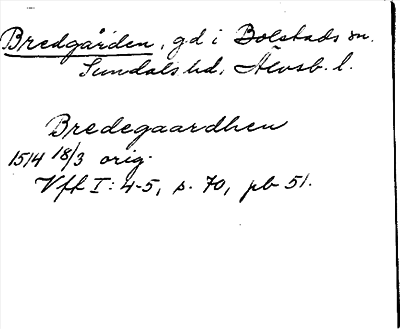 Bredgården, gd i Bolstads sn.
Sundals hd, Älvsb. l.
Bredegaardhen
1514 18/3 orig.
Vft I: 4-5, s. 70, pb 51.